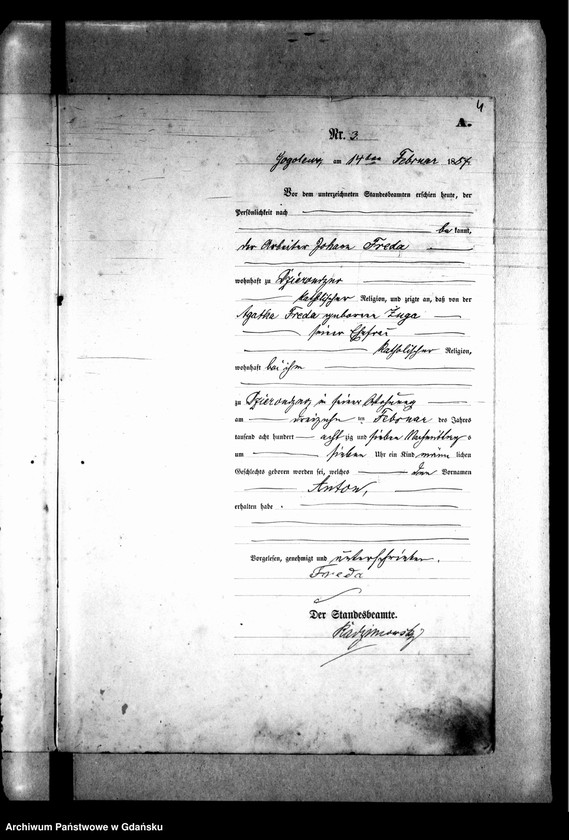 4
A.
Nr. 3.
am 14ten Februar 1887.
Vor dem unterzeichneten Standesbeamten erschien heute, der
Persönlichkeit nach
be kannt,
der Arbeiter Johann Freda
wohnhaft zu
katholischer Religion, und zeigte an, daß von der
Agatha Freda geborene Zuga
seiner Ehefrau
katholischer Religion,
wohnhaft bei ihm
zu in seiner Wohnung
am dreizehn ten Februar des Jahres
tausend acht hundert acht zig und sieben Nachmittag s
um sieben Uhr ein Kind männ lichen
Geschlechts geboren worden sei, welches den Vornamen
Anton,
erhalten habe.
Vorgelesen, genehmigt und unterschrieben.
Freda
Der Standesbeamte.
Archiwum Państwowe w Gdańsku